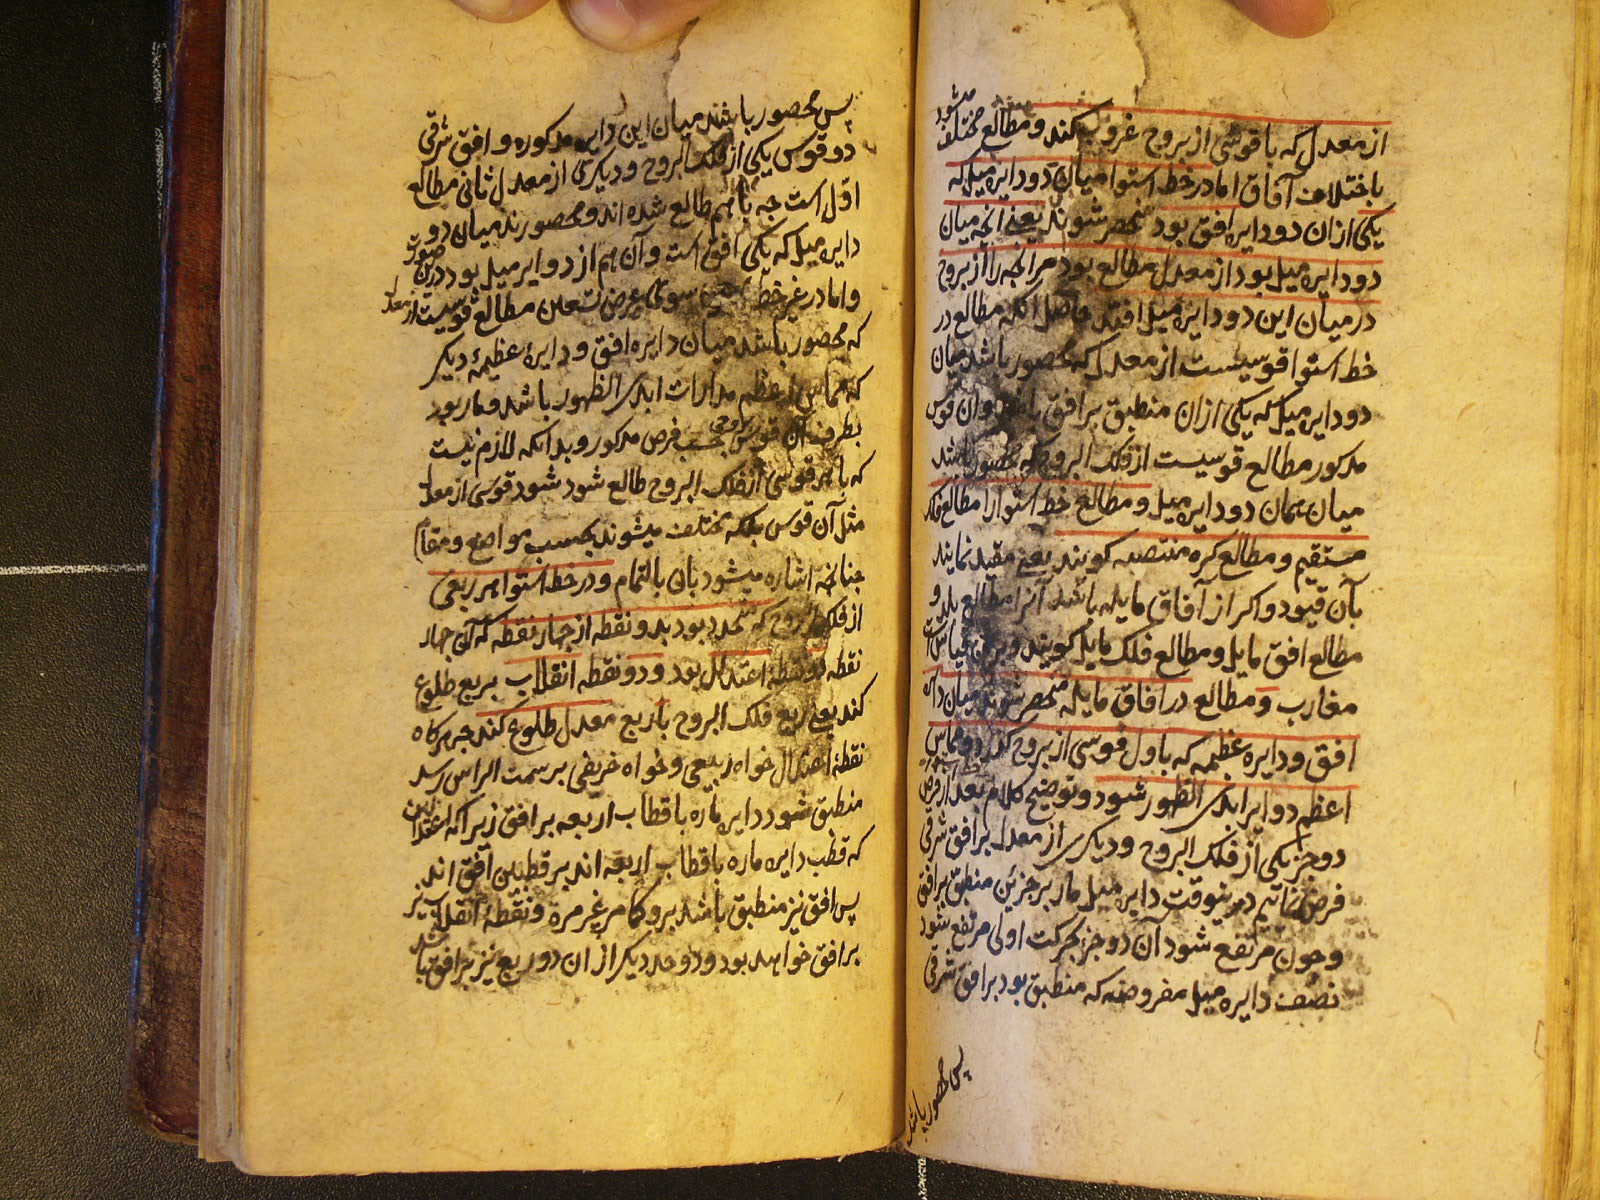 از معدل که با قوسی از بروج غروب کند و مطالع مختلف میشود
باختلاف آفاق اما در خط استوا میان دو دایره میل که
یکی ازان دو دایره افق بود منحصر شوند یعنی انچه میان
دو دایره میل بود از معدل مطالع بود مر انچه را از بروج
در میان این دو دایره میل افتد حاصل انکه مطالع در
خط استوا قوسیست از معدل که محصور باشد میان
دو دایره میل که یکی ازان منطبق بر افق باشد و ان قوس
مذکور مطالع قوسیست از فلک البروج که محصور باشد
میان همان دو دایره میل و مطالع خط استوا را مطالع فلک
مستقیم و مطالع کره منتصبه کویند یعنی مقید نمایند
بآن قیود و اکر از آفاق مایله باشد آنرا مطالع بلد و
مطالع افق مایل و مطالع فلک مایل کویند و برین قیاس است
مغارب و مطالع در افاق مایله منحصر شوند میان دایره
افق و دایره عظیمه که باول قوسی از بروج کذرد و مماس
اعظم دوایر ابدی الظهور شود و توضیح کلام بعد از فرض
دو جز یکی از فلک البروج و دیکری از معدل بر افق شرقی
فرض نمائیم درینوقت دایره میل مار بر جزئین منطبق بر افق
و چون مرتفع شود آن دو جز بحرکت اولی مرتفع شود
نصف دایره میل مفروضه که منطبق بود بر افق شرقی
پس محصور باشد
پس محصور باشند میان این دایره مذکوره و افق شرقی
دو قوس یکی از فلک البروج و دیکری از معدل ثانی مطالع
اول است چه با هم طالع شده اند و محصورند میان دو
دایره میل که یکی افق است و آن هم از دوایر میل بود درین صورت
و اما در غیر خط عرض تسعین مطالع قوسیست از معدل
که محصور باشد میان دایره افق و دایره عظیمه دیکر
که مماس اعظم مدارات ابدی الظهور باشد و مار بود
بطرف آن قوس بروجی بحسب فرض مذکور و بدانکه لازم نیست
که با هر قوسی از فلک البروج طالع شود شود قوسی از معدل
مثل آن قوس بلکه مختلف میشوند بحسب مواضع و مقام
چنانچه اشاره میشود بان بالتمام و در خط استوا هر ربعی
از فلک البروج که محدد بود بدو نقطه از چهار نقطه که آن چهار
نقطه دو نقطه اعتدال بود و دو نقطه انقلاب بربع طلوع
کند یعنی ربع فلک البروج با ربع معدل طلوع کند چه هرکاه
نقطه اعتدال خواه ربیعی و خواه خریفی بر سمت الراس رسد
منطبق شود دایره ماره باقطاب اربعه بر افق زیرا که اعتدالین
که قطب دایره ماره باقطاب اربعه اند بر قطبین افق اند
پس افق نیز منطبق باشد برو کما مر غیر مرة و نقطه انقلاب نیز
بر افق خواهد بود و دو حد دیکر از ان دو ربع نیز بر افق باشد